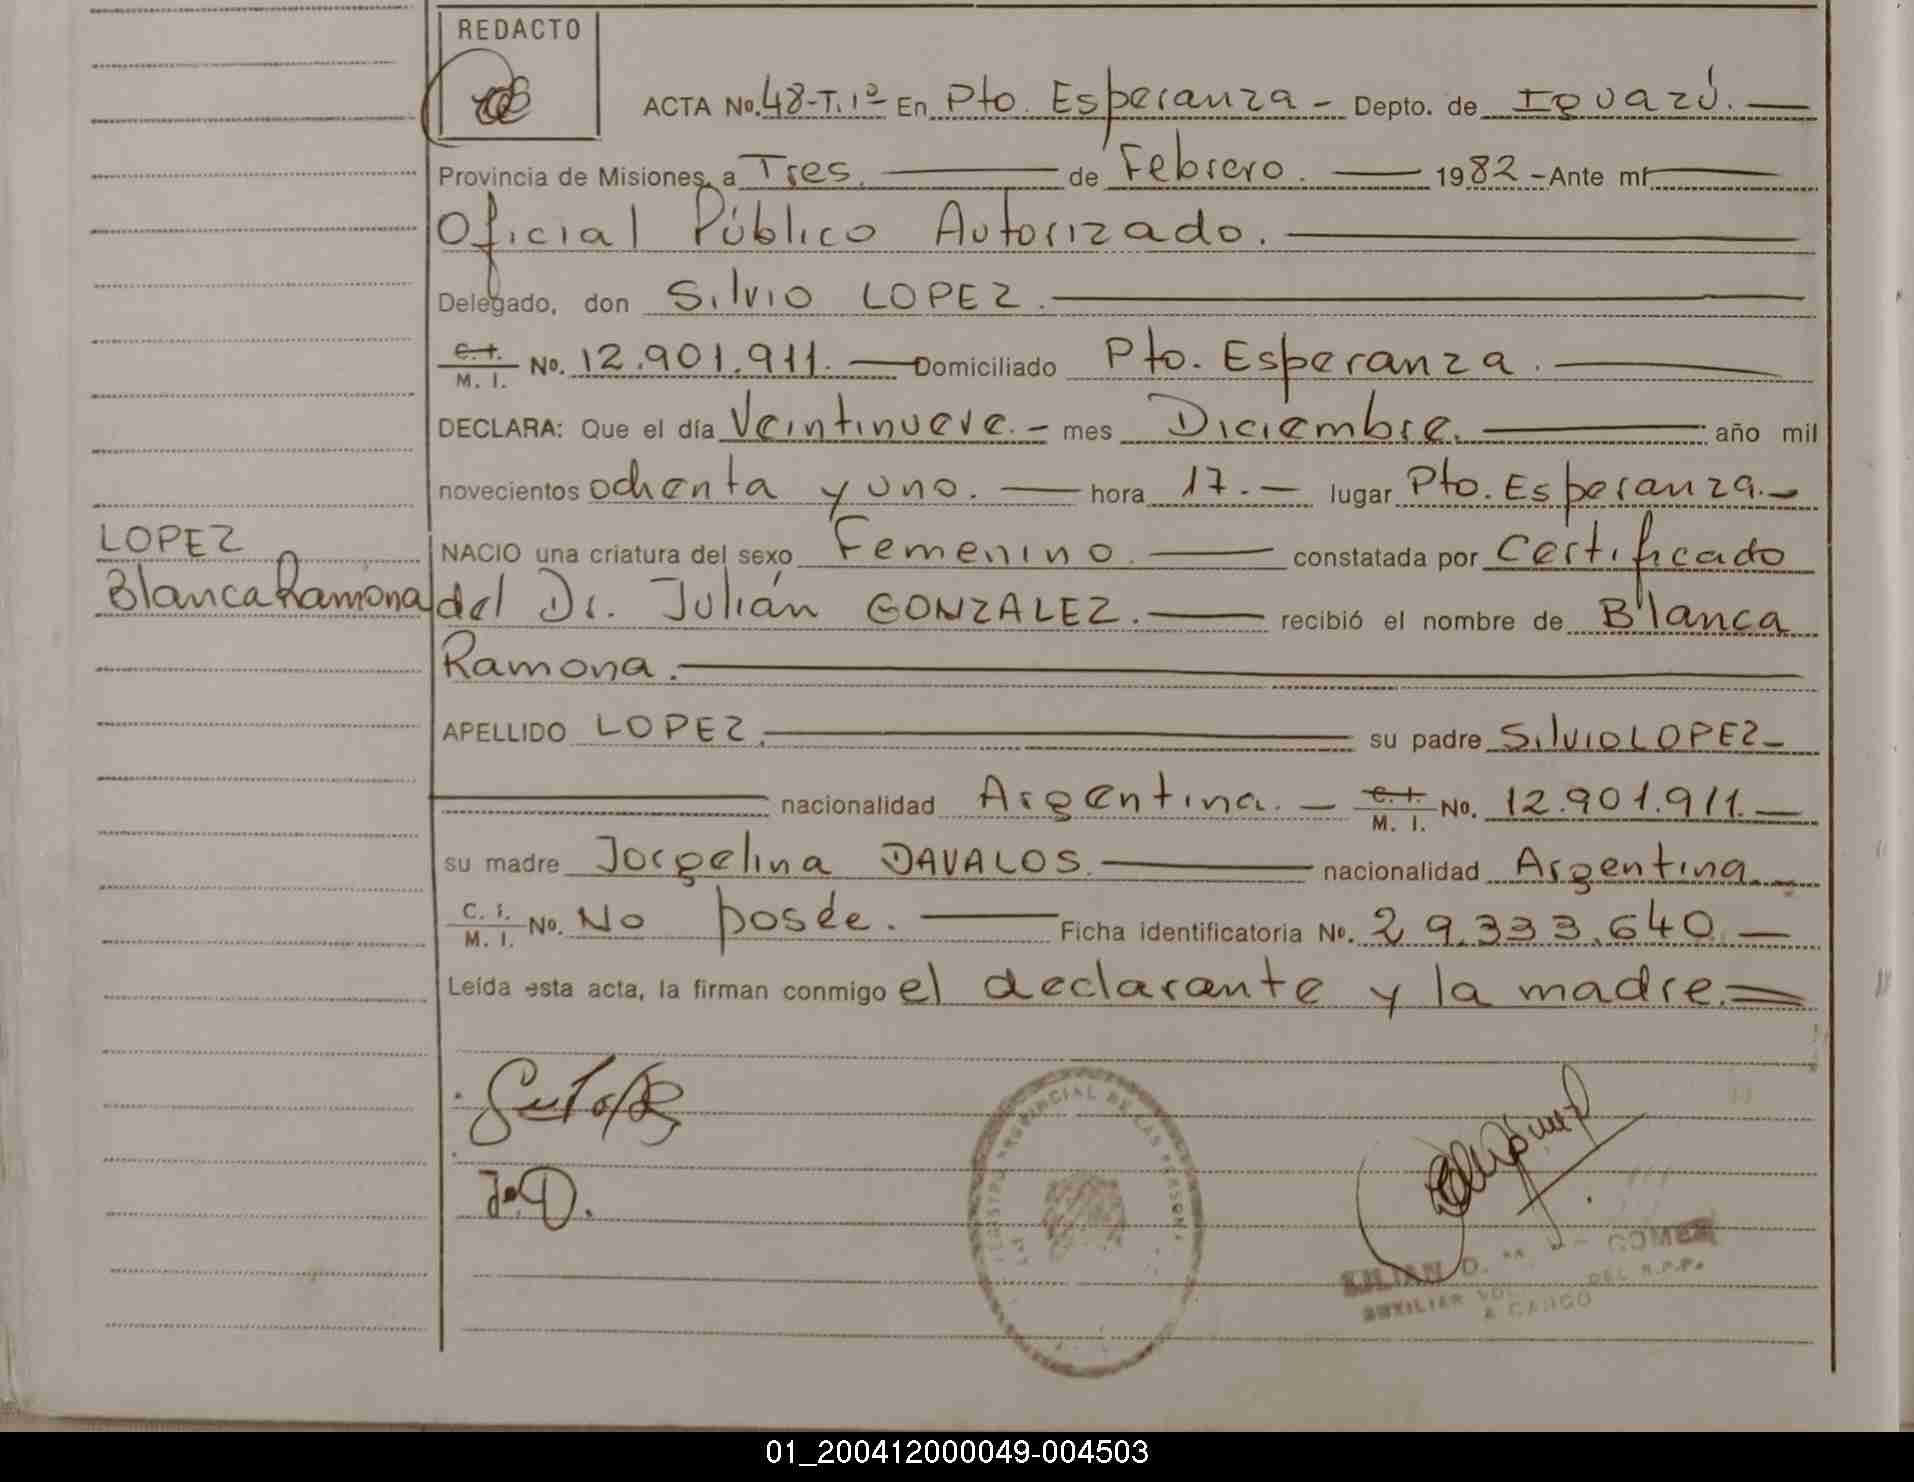 REDACTO
ACTA No. 48-T.1º En Pto. Esperanza - Depto. de Iguazú.
Provincia de Misiones, a Tres. de Febrero. 1982 - Ante mí
Oficial Público Autorizado.
Delegado, don Silvio LOPEZ.
C.I. M. I. No. 12.901.911. Domiciliado Pto. Esperanza.
DECLARA: Que el día Veintinueve. - mes Diciembre. año mil
novecientos ochenta y uno. hora 17. - lugar Pto. Esperanza. -
LOPEZ
Blanca Ramona
NACIO una criatura del sexo Femenino. constatada por Certificado
del Dr. Julián GONZALEZ. recibió el nombre de Blanca
Ramona.
APELLIDO LOPEZ. su padre Silvio LOPEZ -
nacionalidad Argentina. - C.I. M. I. No. 12.901.911. -
su madre Jorgelina DAVALOS. nacionalidad Argentina. -
C. I. M. I. No. No posée. Ficha identificatoria No. 29.333.640 -
Leída esta acta, la firman conmigo el declarante y la madre. =
J.D.
PROVINCIAL DE LAS PERSONAS
LILIAN D. GOMEZ
AUXILIAR DEL R.P.P.
A CARGO
01_200412000049-004503